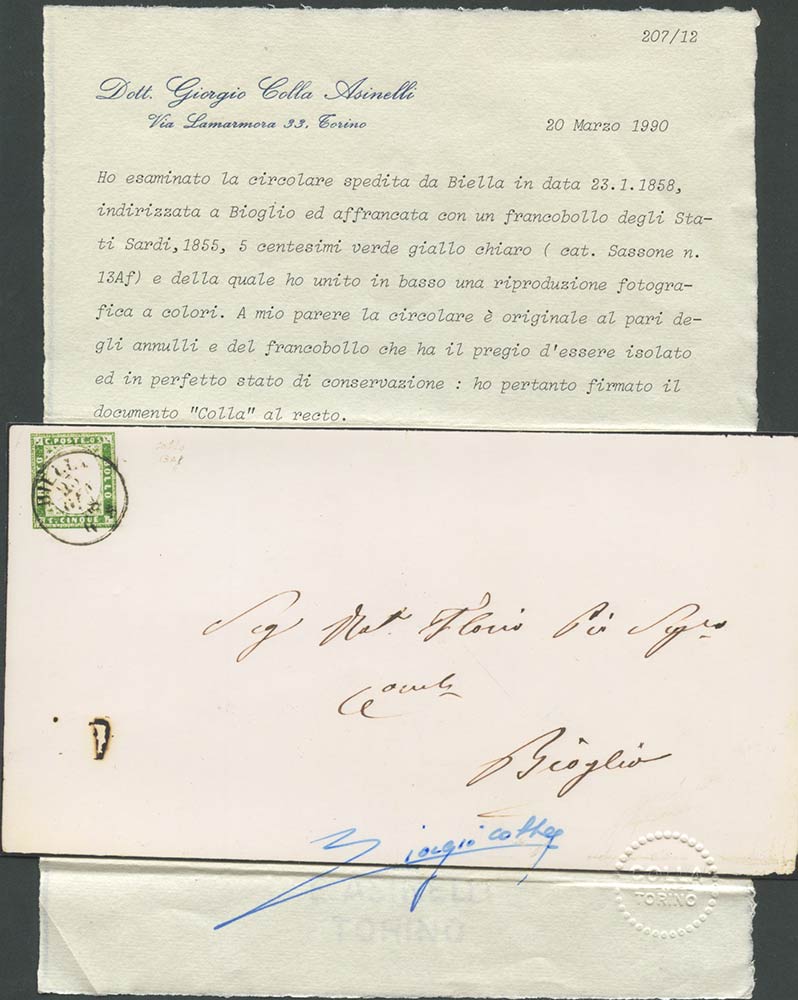 207/12
Dott. Giorgio Colla Asinelli
Via Lamarmora 33, Torino
20 Marzo 1990
Ho esaminato la circolare spedita da Biella in data 23.1.1858,
indirizzata a Bioglio ed affrancata con un francobollo degli Sta-
ti Sardi,1855, 5 centesimi verde giallo chiaro ( cat. Sassone n.
13Af) e della quale ho unito in basso una riproduzione fotogra-
fica a colori. A mio parere la circolare è originale al pari de-
gli annulli e del francobollo che ha il pregio d'essere isolato
ed in perfetto stato di conservazione : ho pertanto firmato il
documento "Colla" al recto.
C. POSTE.
BOLLO
C. CINQUE
BIELLA
23
Sig Not. Florio
Bioglio
Giorgio Colla
COLLA
TORINO
ASINELLI
TORINO